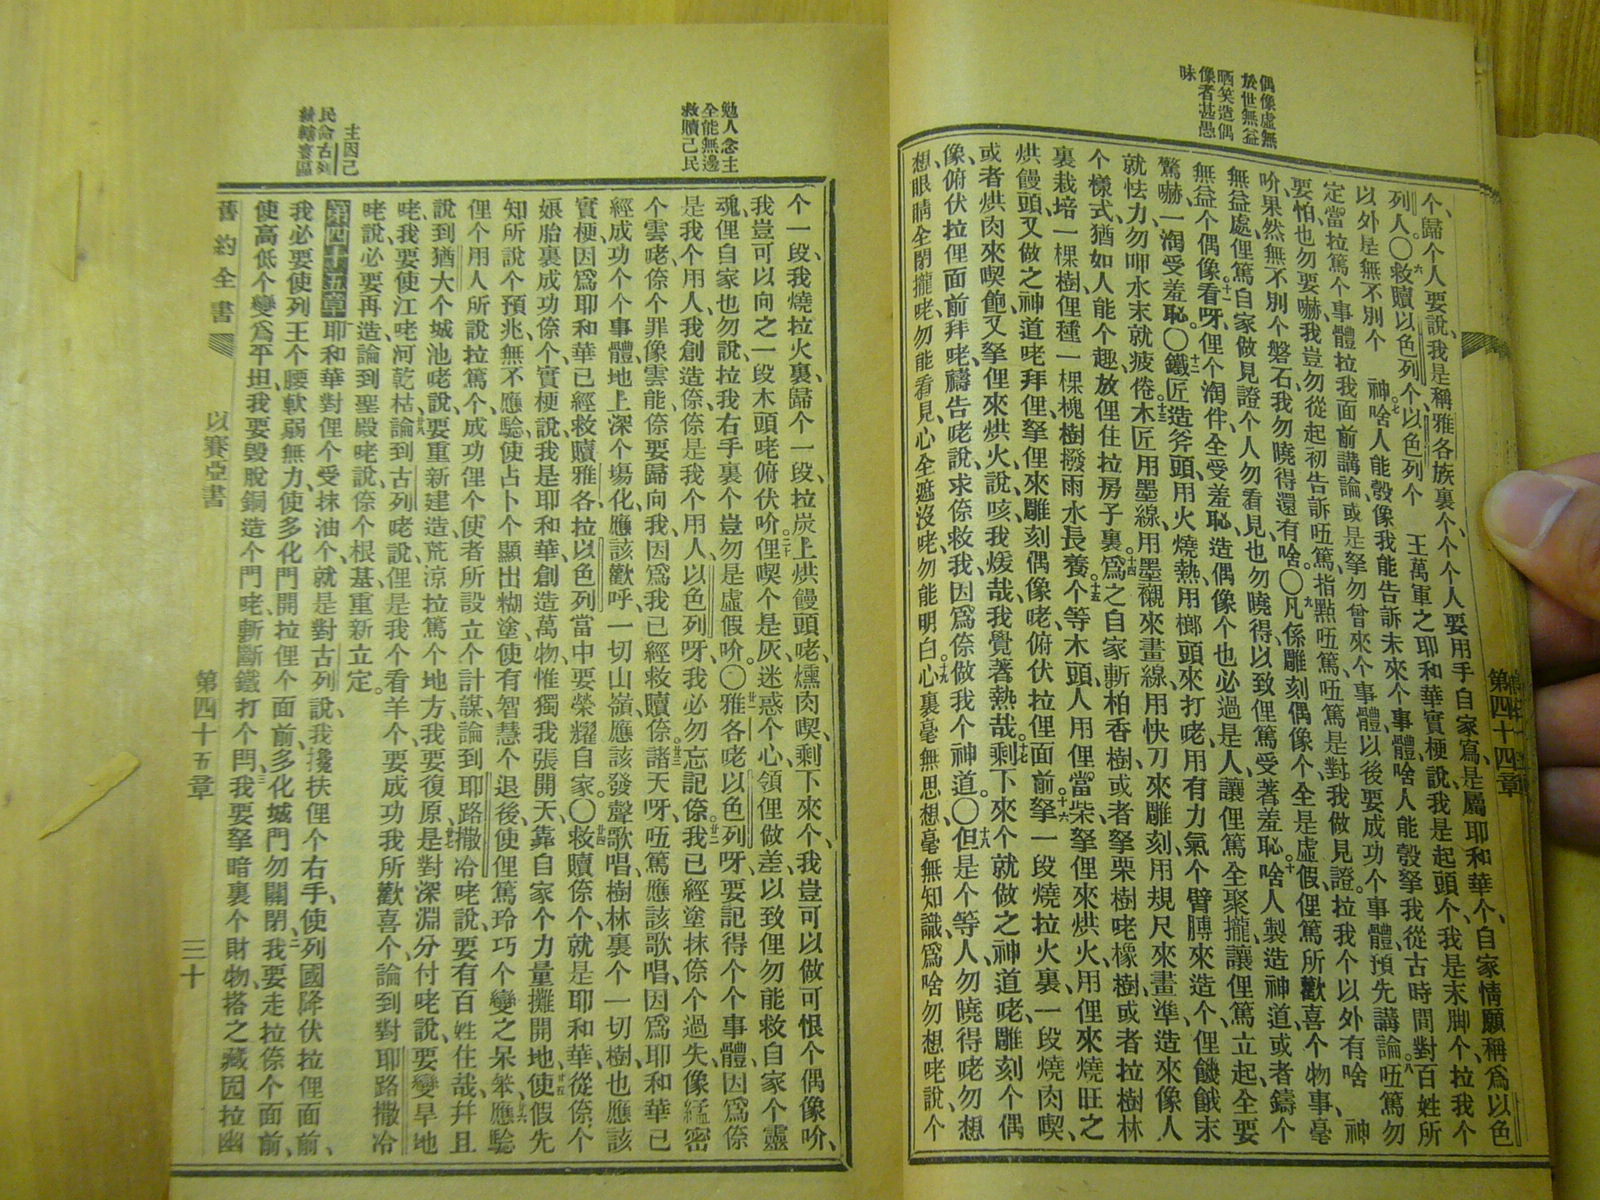 偶像虛無
於世無益
哂笑造偶
像者甚愚
昧
个、歸个人要說、我是稱雅各族裏个、个个人要用手自家寫、是屬耶和華个、自家情願稱爲以色
列人。〇六救贖以色列个、以色列个 王萬軍之耶和華實梗說、我是起頭个、我是末脚个、拉我个
以外是無不別个 神。七啥人能彀像我能告訴未來个事體、啥人能彀拏我從古時間對百姓所
定當拉篤个事體、拉我面前講論、或是拏勿曾來个事體、以後要成功个事體、預先講論。八㕶篤勿
要怕、也勿要嚇、我豈勿從起初告訴㕶篤、指點㕶篤、㕶篤是對我做見證。拉我个以外有啥 神
吤、果然無不別个磐石、我勿曉得還有啥。〇九凡係雕刻偶像个、全是虛假、俚篤所歡喜个物事、毫
無益處、俚篤自家做見證个人、勿看見、也勿曉得、以致俚篤受著羞恥。十啥人製造神道、或者鑄个
無益个偶像。十一看呀、俚个淘伴全受羞恥、造偶像个也必過是人、讓俚篤全聚攏、讓俚篤立起、全要
驚嚇、一淘受羞恥。〇十二鐵匠造斧頭、用火燒熱、用榔頭來打咾、用有力氣个臂膊來造个、俚饑餓末
就怯力、勿呷水末就疲倦。十三木匠用墨線、用墨襯來畫線、用快刀來雕刻、用規尺來畫準、造來像人
个樣式、猶如人能个趣、放俚住拉房子裏。十四爲之自家、斬柏香樹、或者拏栗樹咾橡樹、或者拉樹林
裏栽培一棵樹、俚種一棵槐樹、撥雨水長養。十五个等木頭、人用俚當柴、拏俚來烘火、用俚來燒旺之
烘饅頭、又做之神道咾拜俚、拏俚來雕刻偶像咾俯伏拉俚面前。十六拏一段燒拉火裏、一段燒肉喫、
或者烘肉來喫飽、又拏俚來烘火、說咳我煖哉、我覺著熱哉。十七剩下來个、就做之神道咾雕刻个偶
像、俯伏拉俚面前拜咾、禱告咾說、求倷救我、因爲倷做我个神道。〇十八但是个等人勿曉得咾勿想
想、眼睛全閉攏咾勿能看見、心全遮沒咾、勿能明白。十九心裏毫無思想、毫無知識、爲啥勿想咾說、个
第四十四章
勉人念主
全能無邊
救贖己民
主因己
民命古列
統轄寰區
个一段、我燒拉火裏、歸个一段、拉炭上烘饅頭咾、燻肉喫、剩下來个、我豈可以做可恨个偶像吤、
我豈可以向之一段木頭咾俯伏吤。二十俚喫个是灰、迷惑个心、領俚做差、以致俚勿能救自家个靈
魂、俚自家也勿說、拉我右手裏个、豈勿是虛假吤。〇廿一雅各咾以色列呀、要記得个个事體、因爲倷
是我个用人、我創造倷、倷是我个用人、以色列呀、我必勿忘記倷。廿二我已經塗抹倷个過失、像綎密
个雲咾、倷个罪像雲能、倷要歸向我、因爲我已經救贖倷。廿三諸天呀、㕶篤應該歌唱、因爲耶和華已
經成功个个事體、地上深个塲化、應該歡呼、一切山嶺、應該發聲歌唱、樹林裏个一切樹、也應該
實梗、因爲耶和華已經救贖雅各、拉以色列當中要榮耀自家。〇廿四救贖倷个、就是耶和華、從倷个
娘胎裏成功倷个、實梗說、我是耶和華、創造萬物、惟獨我張開天、靠自家个力量攤開地、廿五使假先
知所說个預兆、無不應騐、使占卜个顯出糊塗、使有智慧个退後、使俚篤玲巧个變之呆笨、廿六應騐
俚个用人所說拉篤个、成功俚个使者所設立个計謀、論到耶路撒冷咾說、要有百姓住哉、幷且
說到猶大个城池咾說、要重新建造、荒涼拉篤个地方、我要復原、廿七是對深淵分付咾說、要變旱地
咾、我要使江咾河乾枯、廿八論到古列咾說、俚是我个看羊个、要成功我所歡喜个、論到對耶路撒冷
咾說、必要再造、論到聖殿咾說、倷个根基、重新立定。
第四十五章 耶和華對俚个受抹油个、就是對古列說、我攙扶俚个右手、使列國降伏拉俚面前、
我必要使列王个腰軟弱無力、使多化門開拉俚个面前、多化城門勿關閉、二我要走拉倷个面前、
使高低个變爲平坦、我要毀脫銅造个門咾、斬斷鐵打个閂、三我要拏暗裏个財物、搭之藏囥拉幽
舊約全書 以賽亞書 第四十五章 三十